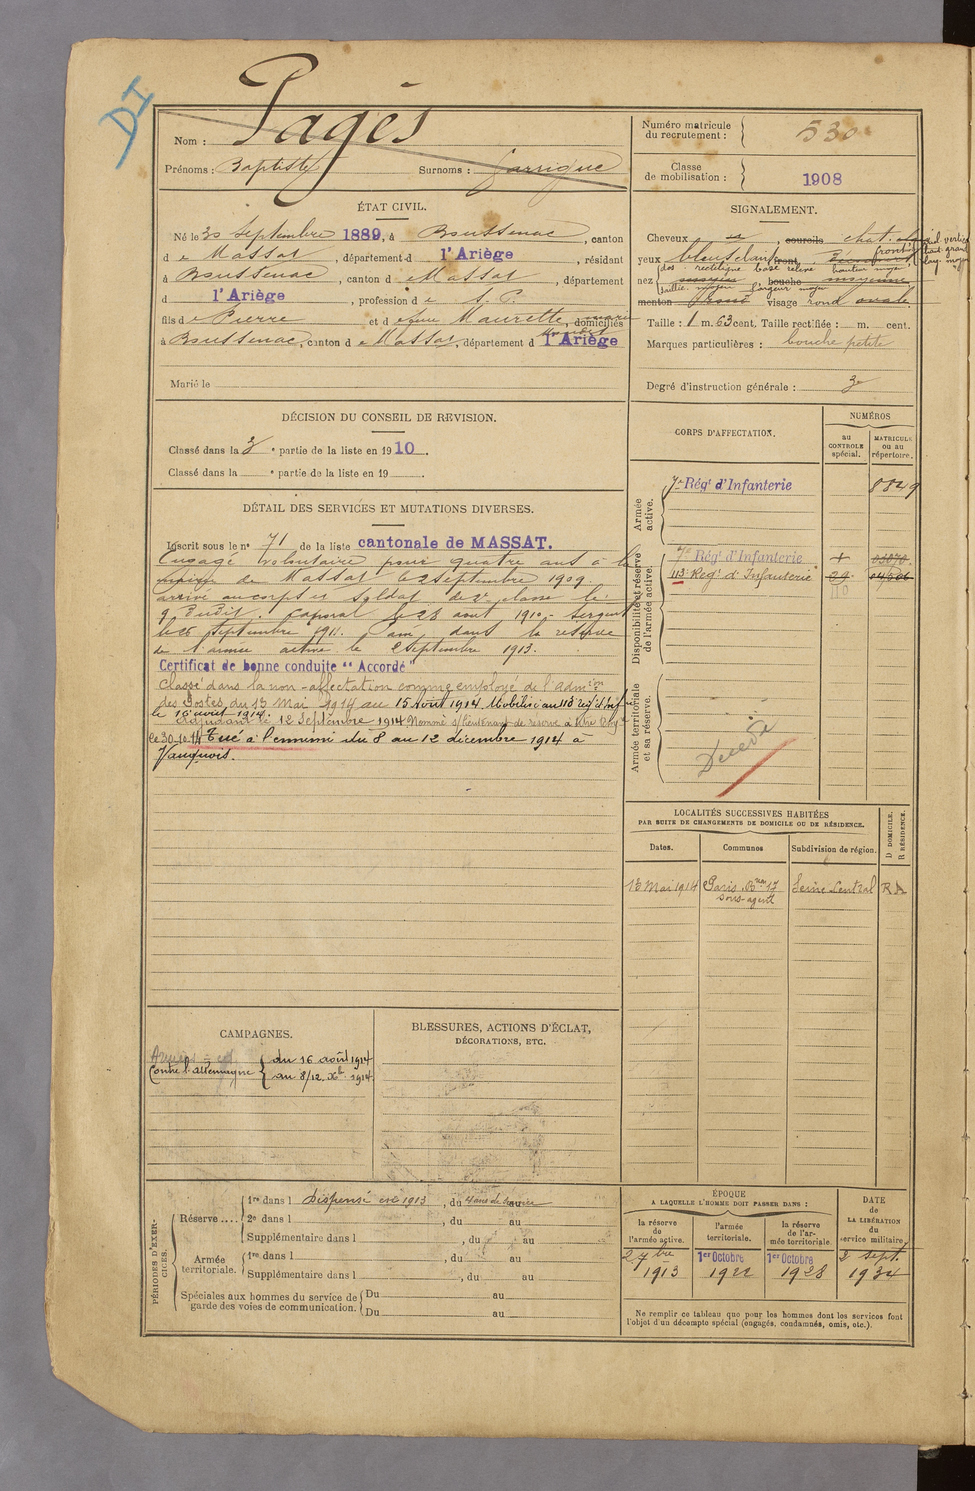 DI
Nom : Pagès
Prénoms : Baptiste Surnoms : Garrigue
Numéro matricule du recrutement : 530
Classe de mobilisation : 1908
ÉTAT CIVIL.
Né le 30 septembre 1889, à Boussenac, canton
de Massat, département d l'Ariège, résidant
à Boussenac, canton de Massat, département
d l'Ariège, profession de
fils de Pierre et de Maurette, domiciliés
à Boussenac, canton de Massat, département d l'Ariège
Marié le
SIGNALEMENT.
Cheveux chat. sourcils
yeux bleus clair, front
nez bouche moyenne
menton rond visage rond ovale
Taille : 1 m. 63 cent. Taille rectifiée : m. cent.
Marques particulières : bouche petite
Degré d'instruction générale : 3
DÉCISION DU CONSEIL DE REVISION.
Classé dans la 3e partie de la liste en 1910.
Classé dans la e partie de la liste en 19
DÉTAIL DES SERVICES ET MUTATIONS DIVERSES.
Inscrit sous le no 71 de la liste cantonale de MASSAT.
Engagé volontaire pour quatre ans à la
mairie de Massat le 2 septembre 1909.
arrivé au corps et soldat de 2e classe le
9 dudit. Caporal le 28 aout 1910. Sergent
le 26 septembre 1911. Passé dans la réserve
de l'armée active le 2 septembre 1913.
Certificat de bonne conduite "Accordé"
Classé dans la non-affectation comme employé de l'admon
des Postes, du 13 Mai 1914 au 15 Août 1914. Mobilisé au 113 rég. d'inf.
le 16 août 1914.
Adjudant le 12 Septembre 1914 Nommé s/lieutenant de réserve à titre
le 30-10-14 Tué à l'ennemi du 8 au 12 décembre 1914 à
Vauquois.
CORPS D'AFFECTATION.
NUMÉROS
au CONTROLE spécial.
MATRICULE ou au répertoire.
Armée active.
7e Régt d'Infanterie 8849
Disponibilité et réserve de l'armée active.
7e Régt d'Infanterie
113 Régt d'Infanterie
Armée territoriale et sa réserve.
Décédé
LOCALITÉS SUCCESSIVES HABITÉES
PAR SUITE DE CHANGEMENTS DE DOMICILE OU DE RÉSIDENCE.
Dates. Communes Subdivision de région. D DOMICILE. R RÉSIDENCE.
13 Mai 1914 Paris, 17 Seine Central R
sous-agent
CAMPAGNES.
Contre l'Allemagne du 16 août 1914
au 8/12 Xbre 1914
BLESSURES, ACTIONS D'ÉCLAT,
DÉCORATIONS, ETC.
PÉRIODES D'EXERCICES.
Réserve.... 1re dans l Dispensé en 1913, du 4 ans de service au
2e dans l , du au
Supplémentaire dans l , du au
Armée territoriale. 1re dans l , du au
Supplémentaire dans l , du au
Spéciales aux hommes du service de garde des voies de communication. Du au
Du au
ÉPOQUE
A LAQUELLE L'HOMME DOIT PASSER DANS :
la réserve de l'armée active.
l'armée territoriale.
la réserve de l'armée territoriale.
DATE de LA LIBÉRATION du service militaire
2 7bre 1913
1er Octobre 1922
1er Octobre 1928
2 sept 1934
Ne remplir ce tableau que pour les hommes dont les services font
l'objet d'un décompte spécial (engagés, condamnés, omis, etc.).